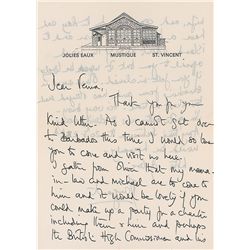 JOLIES EAUX MUSTIQUE ST. VINCENT
Dear
Thank you for your
kind letter. As I cannot get over
to Barbados this time I would so love
you to come and visit us here.
I gather from Oliver that my mama-
in-law and Michael are to come to
him and it would be lovely if you
could make up a party for a charter
including them & him and perhaps
the British High Commissioner and his